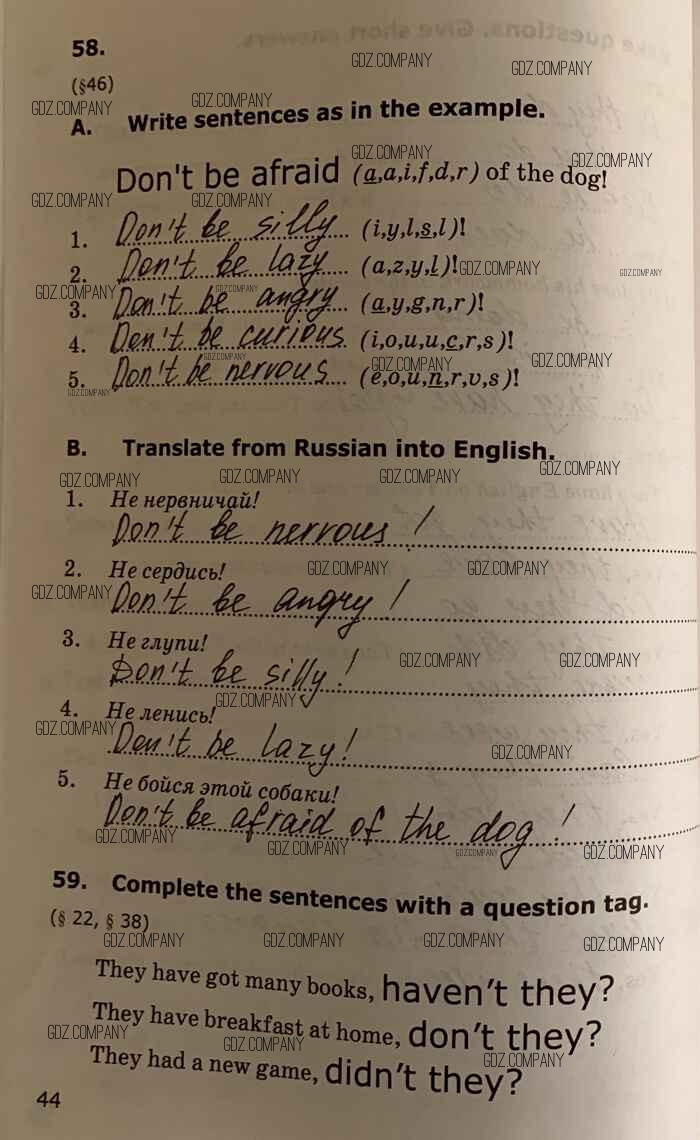 58.
(§46)
A. Write sentences as in the example.
Don't be afraid (a,a,i,f,d,r) of the dog!
1. Don't be silly (i,y,l,s,l)!
2. Don't be lazy (a,z,y,l)!
3. Don't be angry (a,y,g,n,r)!
4. Don't be curious (i,o,u,u,c,r,s)!
5. Don't be nervous (e,o,u,n,r,v,s)!
B. Translate from Russian into English.
1. Не нервничай!
Don't be nervous!
2. Не сердись!
Don't be angry!
3. Не глупи!
Don't be silly!
4. Не ленись!
Don't be lazy!
5. Не бойся этой собаки!
Don't be afraid of the dog!
59. Complete the sentences with a question tag.
(§ 22, § 38)
They have got many books, haven't they?
They have breakfast at home, don't they?
They had a new game, didn't they?
44
GDZ.COMPANY